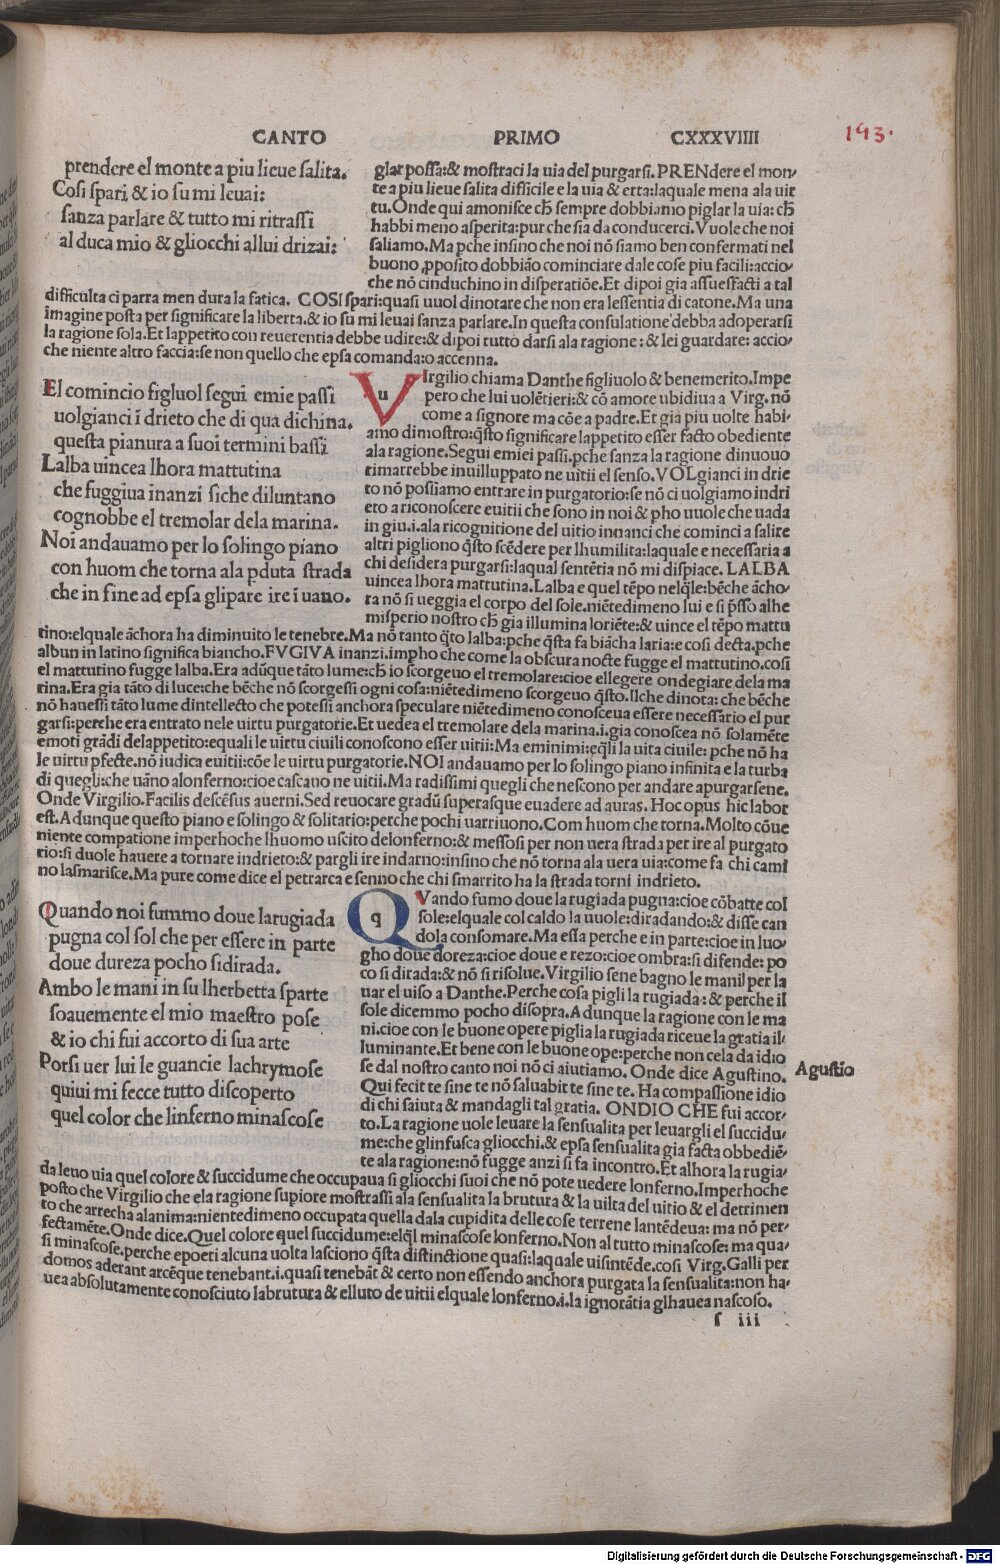 CANTO PRIMO CXXXVIIII
193.
prendere el monte a piu lieue salita.
Cosi spari, & io su mi leuai:
sanza parlare & tutto mi ritrassi
al duca mio & gliocchi allui drizai:
glar possa:& mostraci la uia del purgarsi. PRENdere el mon,
te a piu lieue salita difficile e la uia & erta:laquale mena ala uir
tu. Onde qui amonisce ch̄ sempre dobbiamo piglar la uia: ch̄
habbi meno asperita: pur che sia da conducerci. Vuole che noi
saliamo. Ma pche insino che noi nō siamo ben confermati nel
buono ,pposito dobbiāo cominciare dale cose piu facili:accio,
che nō cinduchino in disperatiōe. Et dipoi gia assuesfacti a tal
difficulta ci parra men dura la fatica. COSI spari:quasi uuol dinotare che non era lessentia di catone. Ma una
imagine posta per significare la liberta.& io su mi leuai sanza parlare. In questa consulatione debba adoperarsi
la ragione sola. Et lappetito con reuerentia debbe udire:& dipoi tutto darsi ala ragione : & lei guardare: accio,
che niente altro faccia:se non quello che epsa comanda:o accenna.
El comincio figluol segui emie passi
uolgianci ī drieto che di qua dichina.
questa pianura a suoi termini bassi
Lalba uincea lhora mattutina
che fuggiua inanzi siche diluntano
cognobbe el tremolar dela marina.
Noi andauamo per lo solingo piano
con huom che torna ala pduta strada
che in fine ad epsa glipare ire ī uano.
VIrgilio chiama Danthe figliuolo & benemerito. Impe
pero che lui uolētieri:& cō amore ubidiua a Virg. nō
come a signore ma cōe a padre. Et gia piu uolte habi,
amo dimostro:q̄sto significare lappetito esser facto obediente
ala ragione. Segui emiei passi. pche sanza la ragione dinuouo
rimarrebbe inuilluppato ne uitii el senso. VOLgianci in drie
to nō possiamo entrare in purgatorio:se nō ci uolgiamo indri
eto a riconoscere euitii che sono in noi & pho uuole che uada
in giu.i.ala ricognitione del uitio innanci che cominci a salire
altri pigliono q̄sto scēdere per lhumilita:laquale e necessaria a
chi desidera purgarsi:laqual sentētia nō mi dispiace. LALBA
uincea lhora mattutina. Lalba e quel tēpo nelq̄le:bēche āčho,
ra nō si ueggia el corpo del sole. niētedimeno lui e si p̄sso alhe
misperio nostro ch̄ gia illumina loriēte:& uince el tēpo mattu
tino:elquale āchora ha diminuito le tenebre. Ma nō tanto q̄to lalba:pche q̄sta fa biācha laria:e cosi decta. pche
albun in latino significa biancho. FVGIVA inanzi.impho che come la obscura nocte fugge el mattutino. cosi
el mattutino fugge lalba. Era adūque tāto lume:ch̄ io scorgeuo el tremolare:cioe ellegere ondegiare dela ma
rina. Era gia tāto di luce:che bēche nō scorgessi ogni cosa:niētedimeno scorgeuo q̄sto. Ilche dinota: che bēche
nō hauessi tāto lume dintellecto che potessi anchora speculare niētedimeno conosceua essere necessario el pur
garsi:perche era entrato nele uirtu purgatorie. Et uedea el tremolare dela marina.i.gia conoscea nō solamēte
emoti grādi delappetito:equali le uirtu ciuili conoscono esser uitii: Ma eminimi:eq̄li la uita ciuile: pche nō ha
le uirtu pfecte. nō iudica euitii:cōe le uirtu purgatorie. NOI andauamo per lo solingo piano infinita e la turba
di quegli:che uāno alonferno:cioe cascauo ne uitii. Ma radissimi quegli che nescono per andare apurgarsene.
Onde Virgilio. Facilis descēsus auerni. Sed reuocare gradū superasque euadere ad auras. Hoc opus hic labor
est. Adunque questo piano e solingo & solitario:perche pochi uarriuono. Com huom che torna. Molto cōue
niente compatione imperhoche lhuomo uscito delonferno:& messosi per non uera strada per ire al purgato
rio:si duole hauere a tornare indrieto:& pargli ire indarno:insino che nō torna ala uera uia:come fa chi cami
no lasmarisce. Ma pure come dice el petrarca e senno che chi smarrito ha la strada torni indrieto.
Quando noi fummo doue larugiada
pugna col sol che per essere in parte
doue dureza pocho sidirada.
Ambo le mani in su lherbetta sparte
soauemente el mio maestro pose
& io chi fui accorto di sua arte
Porsi uer lui le guancie lachrymose
quiui mi fecce tutto discoperto
quel color che linferno minascose
QVando fumo doue la rugiada pugna:cioe cōbatte col
sole:elquale col caldo la uuole:diradando:& disse can
dola consomare. Ma essa perche e in parte:cioe in luo,
gho doue doreza:cioe doue e rezo:cioe ombra:si difende: po
co si dirada:& nō si risolue. Virgilio sene bagno le mani! per la
uar el uiso a Danthe. Perche cosa pigli la rugiada:& perche il
sole dicemmo pocho disopra. Adunque la ragione con le ma
ni.cioe con le buone opere piglia la rugiada riceue la gratia il,
luminante. Et bene con le buone ope:perche non cela da idio
se dal nostro canto noi nō ci aiutiamo. Onde dice Agustino.
Qui fecit te sine te nō saluabit te sine te. Ha compassione idio
di chi saiuta & mandagli tal gratia. ONDIO CHE fui accor,
to. La ragione uole leuare la sensualita per leuargli el succidu,
me:che glinfusca gliocchi.& epsa sensualita gia facta obbediē,
te ala ragione:nō fugge anzi si fa incontro. Et alhora la rugia,
da leuo uia quel colore & succidume che occupaua si gliocchi suoi che nō pote uedere lonferno. Imperhoche
posto che Virgilio che ela ragione supiore mostrassi ala sensualita la brutura & la uilta del uitio & el detrimen
to che arrecha alanima:nientedimeno occupata quella dala cupidita delle cose terrene lantēdeua: ma nō per,
fectamēte. Onde dice. Quel colore quel succidume:elq̄l minascose lonferno. Non al tutto minascose: ma qua,
si minascose. perche epoeti alcuna uolta lasciono q̄sta distinctione quasi:laquale uisintēde. cosi Virg. Galli per
domos aderant arcēque tenebant.i.quasi tenebāt & certo non essendo anchora purgata la sensualita:non ha,
uea absolutamente conosciuto labrutura & elluto de uitii elquale lonferno.i.la ignorātia glhauea nascoso.
Agustīo
s iii
Digitalisierung gefördert durch die Deutsche Forschungsgemeinschaft - DFG